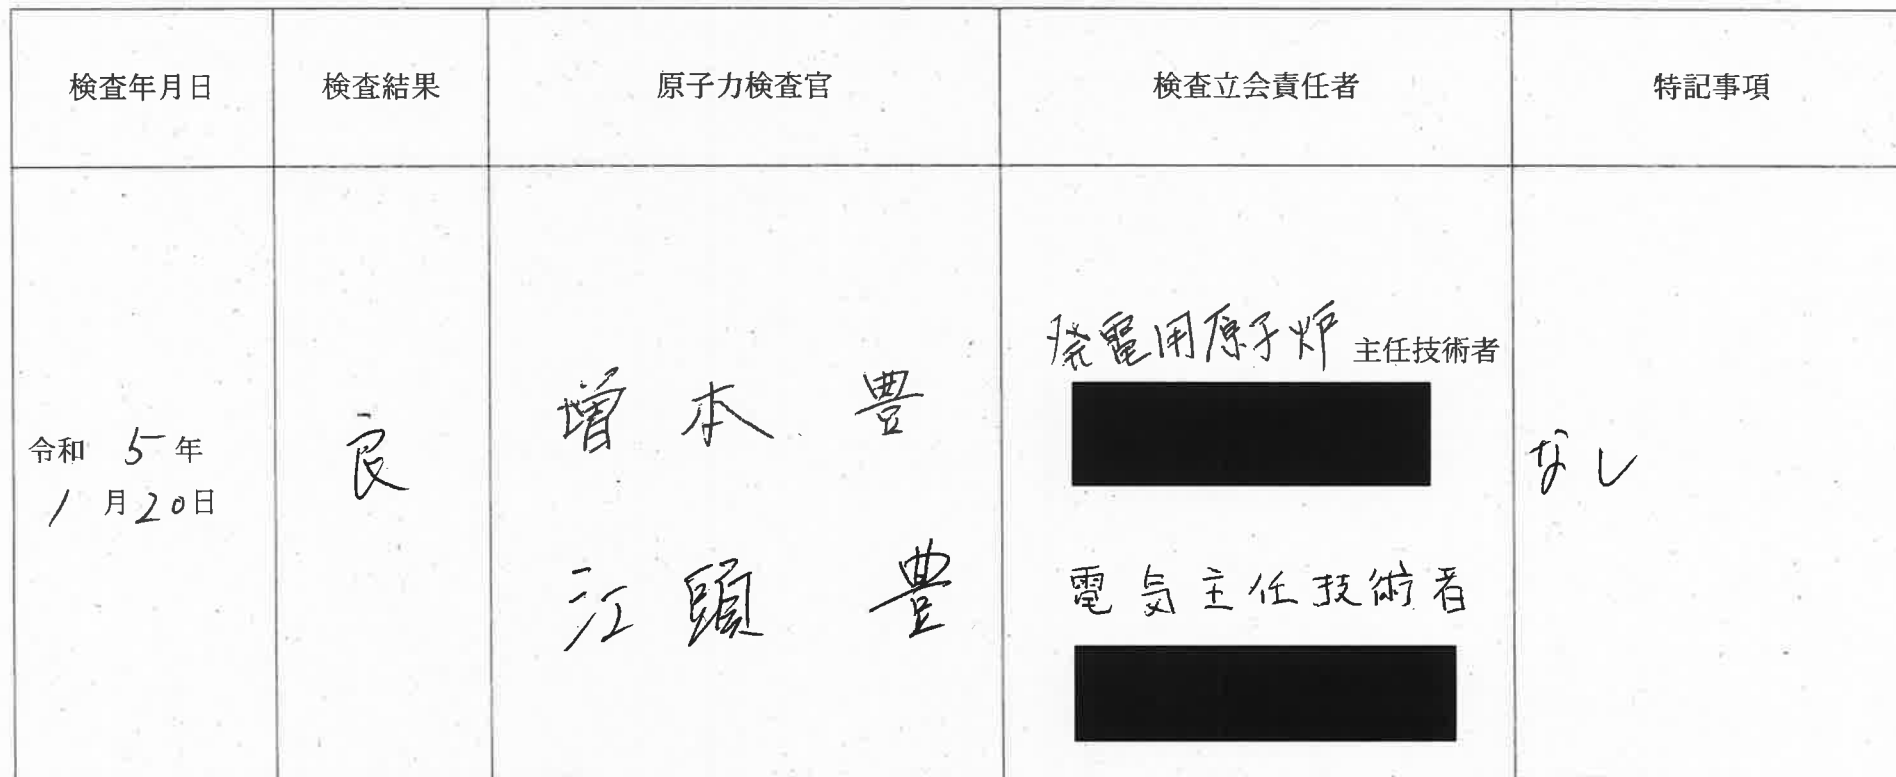 検査年月日 検査結果 原子力検査官 検査立会責任者 特記事項
令和 5年
1月20日
良
増本 豊
江頭 豊
発電用原子炉主任技術者
電気主任技術者
なし